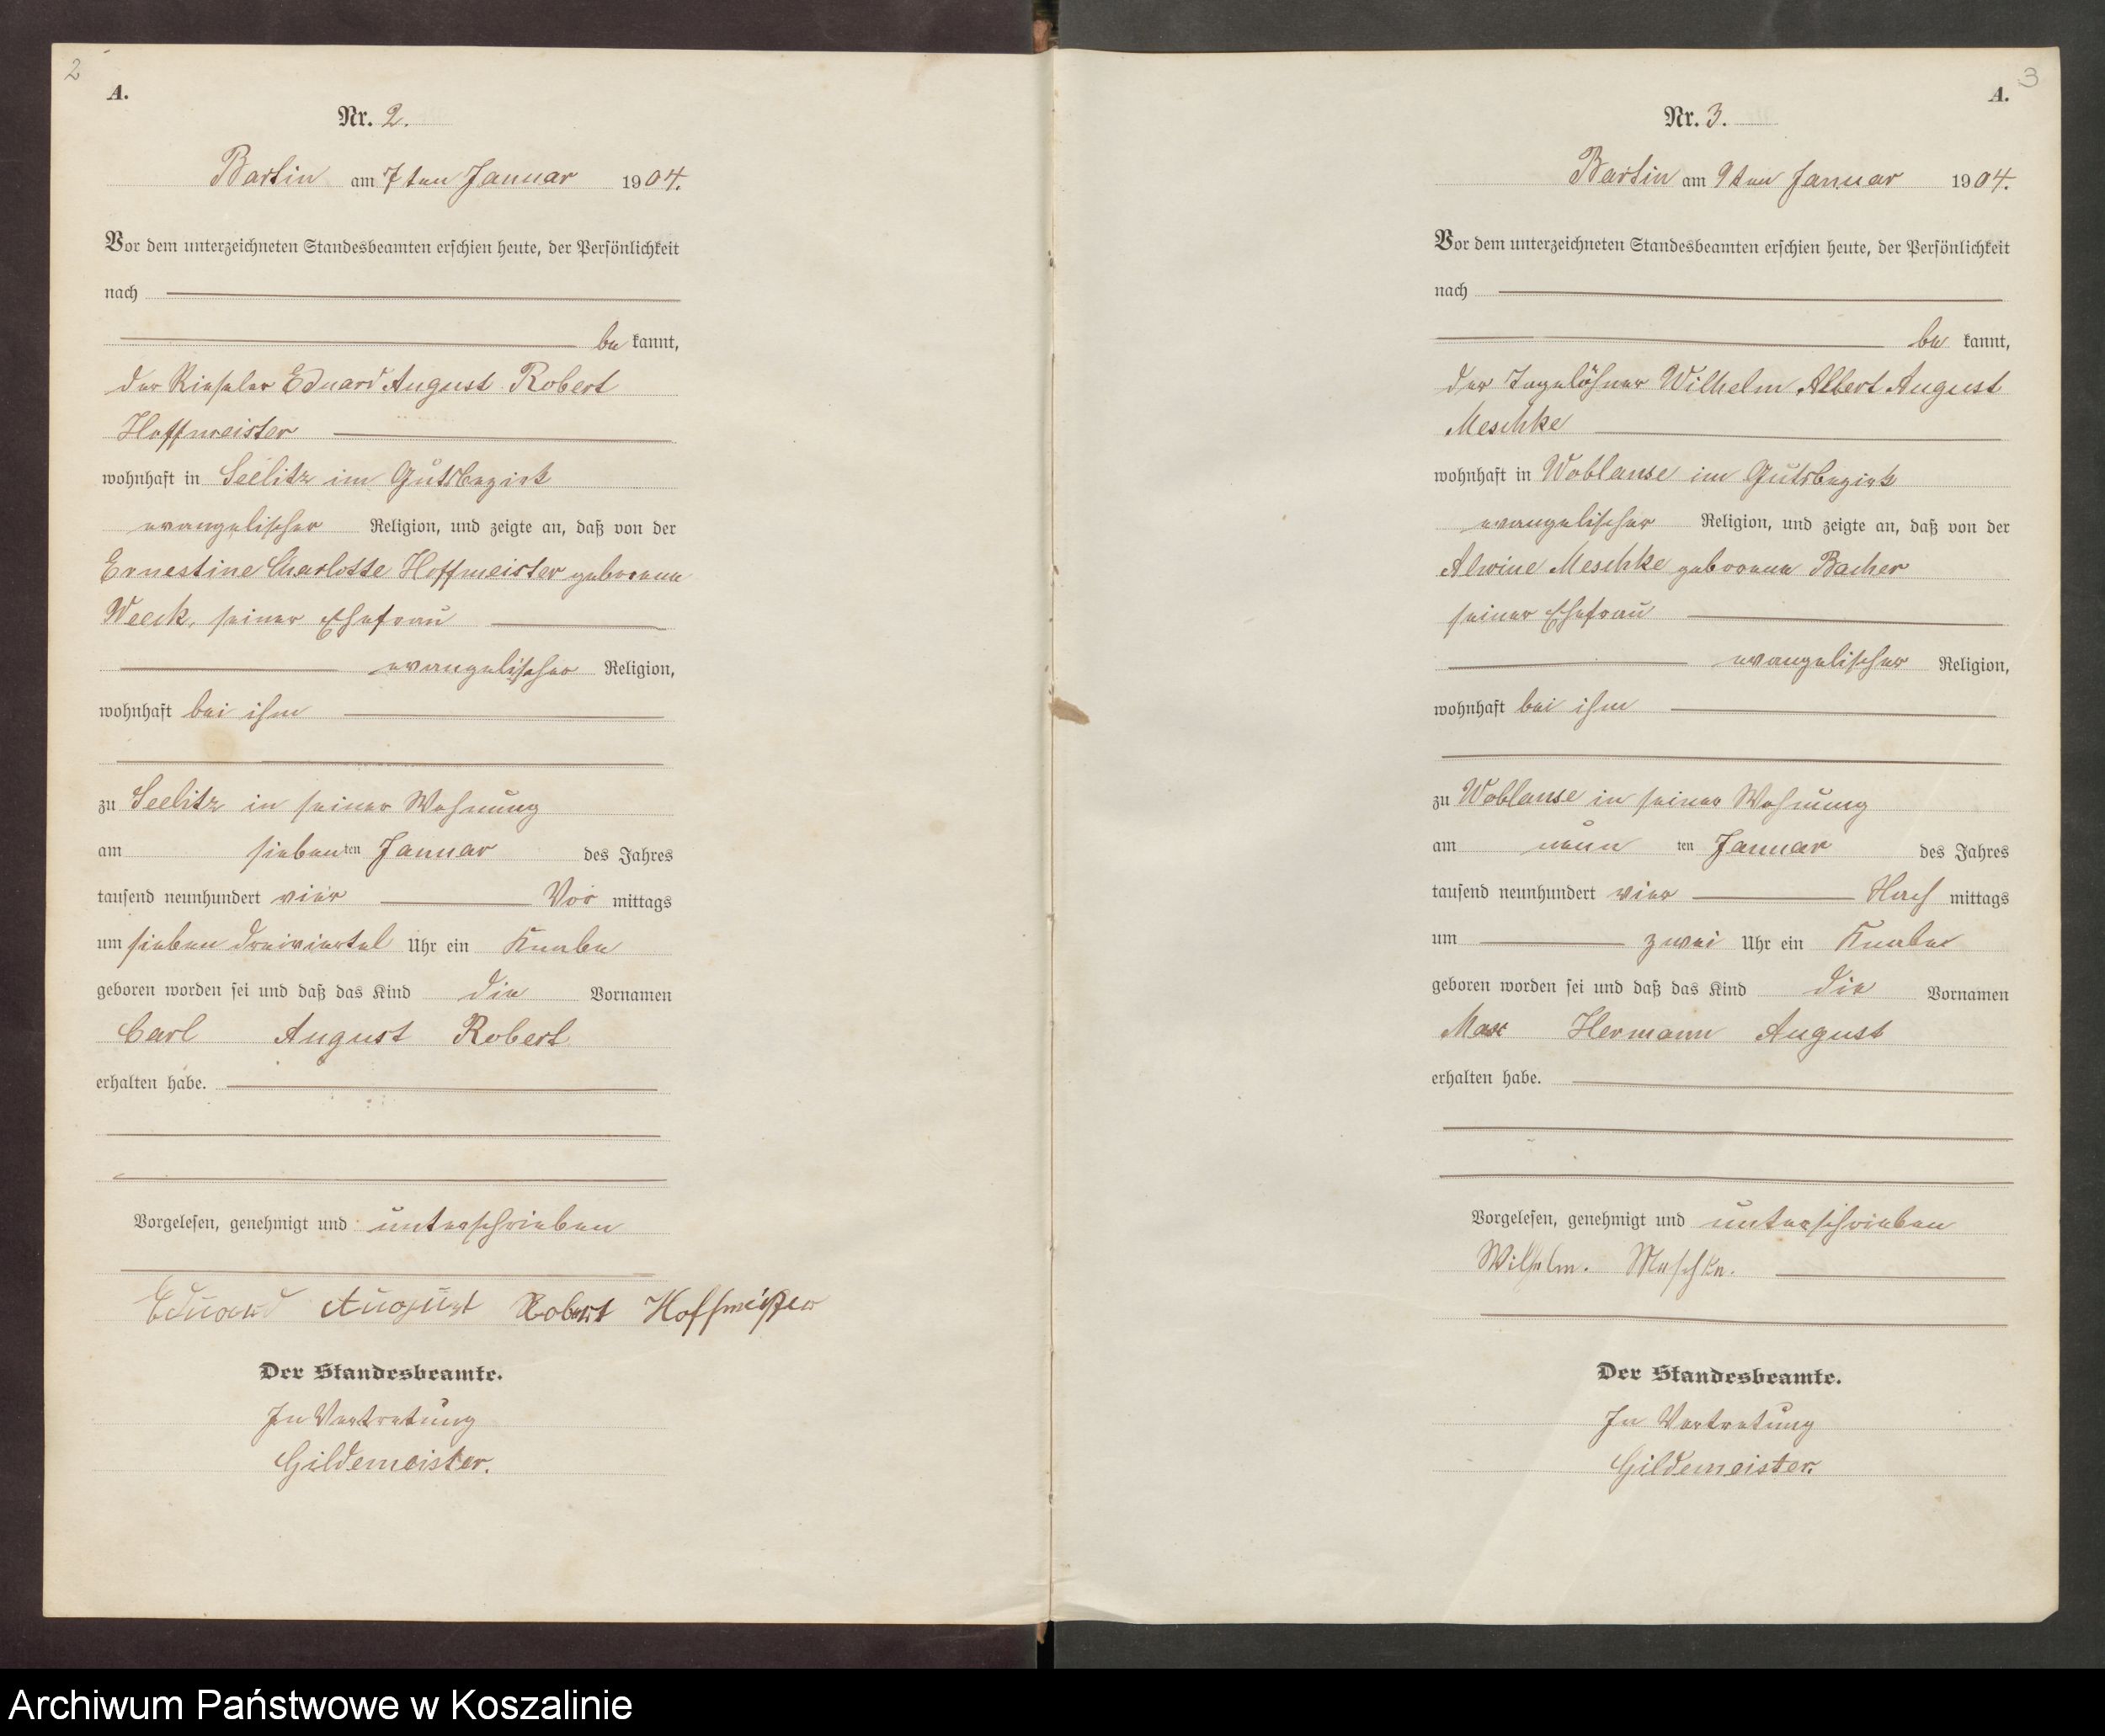 2
A.
Nr. 2.
Bartin am 7ten Januar 1904.
Vor dem unterzeichneten Standesbeamten erschien heute, der Persönlichkeit
nach
be kannt,
der Rieseler Eduard August Robert
Hoffmeister
wohnhaft in Seelitz im Gutsbezirk
evangelischer Religion, und zeigte an, daß von der
Ernestine Charlotte Hoffmeister geborene
Weeck, seiner Ehefrau
evangelischer Religion,
wohnhaft bei ihm
zu Seelitz in seiner Wohnung
am siebenten Januar des Jahres
tausend neunhundert vier Vor mittags
um sieben dreiviertel Uhr ein Knabe
geboren worden sei und daß das Kind die Vornamen
Carl August Robert
erhalten habe.
Vorgelesen, genehmigt und unterschrieben
Eduard August Robert Hoffmeister
Der Standesbeamte.
In Vertretung
Gildemeister.
3
A.
Nr. 3.
Bartin am 9ten Januar 1904.
Vor dem unterzeichneten Standesbeamten erschien heute, der Persönlichkeit
nach
be kannt,
der Tagelöhner Wilhelm Albert August
Meschke
wohnhaft in Woblanse im Gutsbezirk
evangelischer Religion, und zeigte an, daß von der
Alwine Meschke geborene Bacher
seiner Ehefrau
evangelischer Religion,
wohnhaft bei ihm
zu Woblanse in seiner Wohnung
am neun ten Januar des Jahres
tausend neunhundert vier Nach mittags
um zwei Uhr ein Knabe
geboren worden sei und daß das Kind die Vornamen
Max Hermann August
erhalten habe.
Vorgelesen, genehmigt und unterschrieben
Wilhelm. Meschke.
Der Standesbeamte.
In Vertretung
Gildemeister.
Archiwum Państwowe w Koszalinie